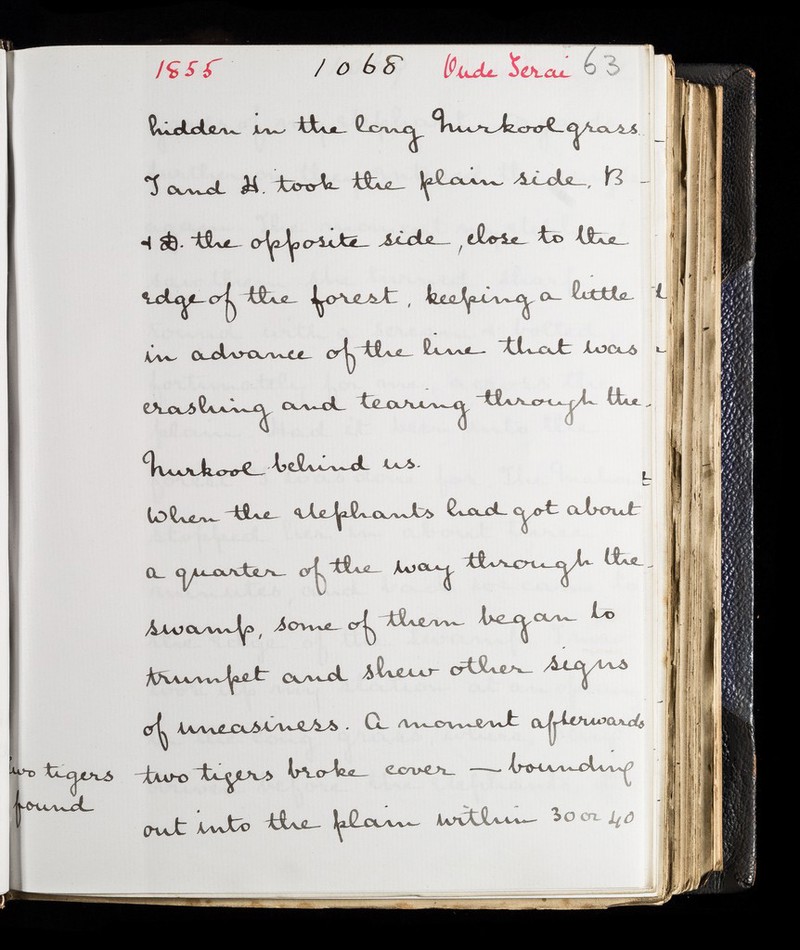 1855 1068 Oude Terai 63
hidden in the long Nurkool grass
I and H. took the plain side, B
& D. the opposite side, close to the
edge of the forest, keeping a little
in advance of the line that was
crashing and tearing through the
Nurkool behind us.
When the elephants had got about
a quarter of the way through the
swamp, some of them began to
trumpet and shew other signs
of uneasiness. A moment afterwards
two tigers broke cover — bounding
out into the plain within 30 or 40
two tigers
found